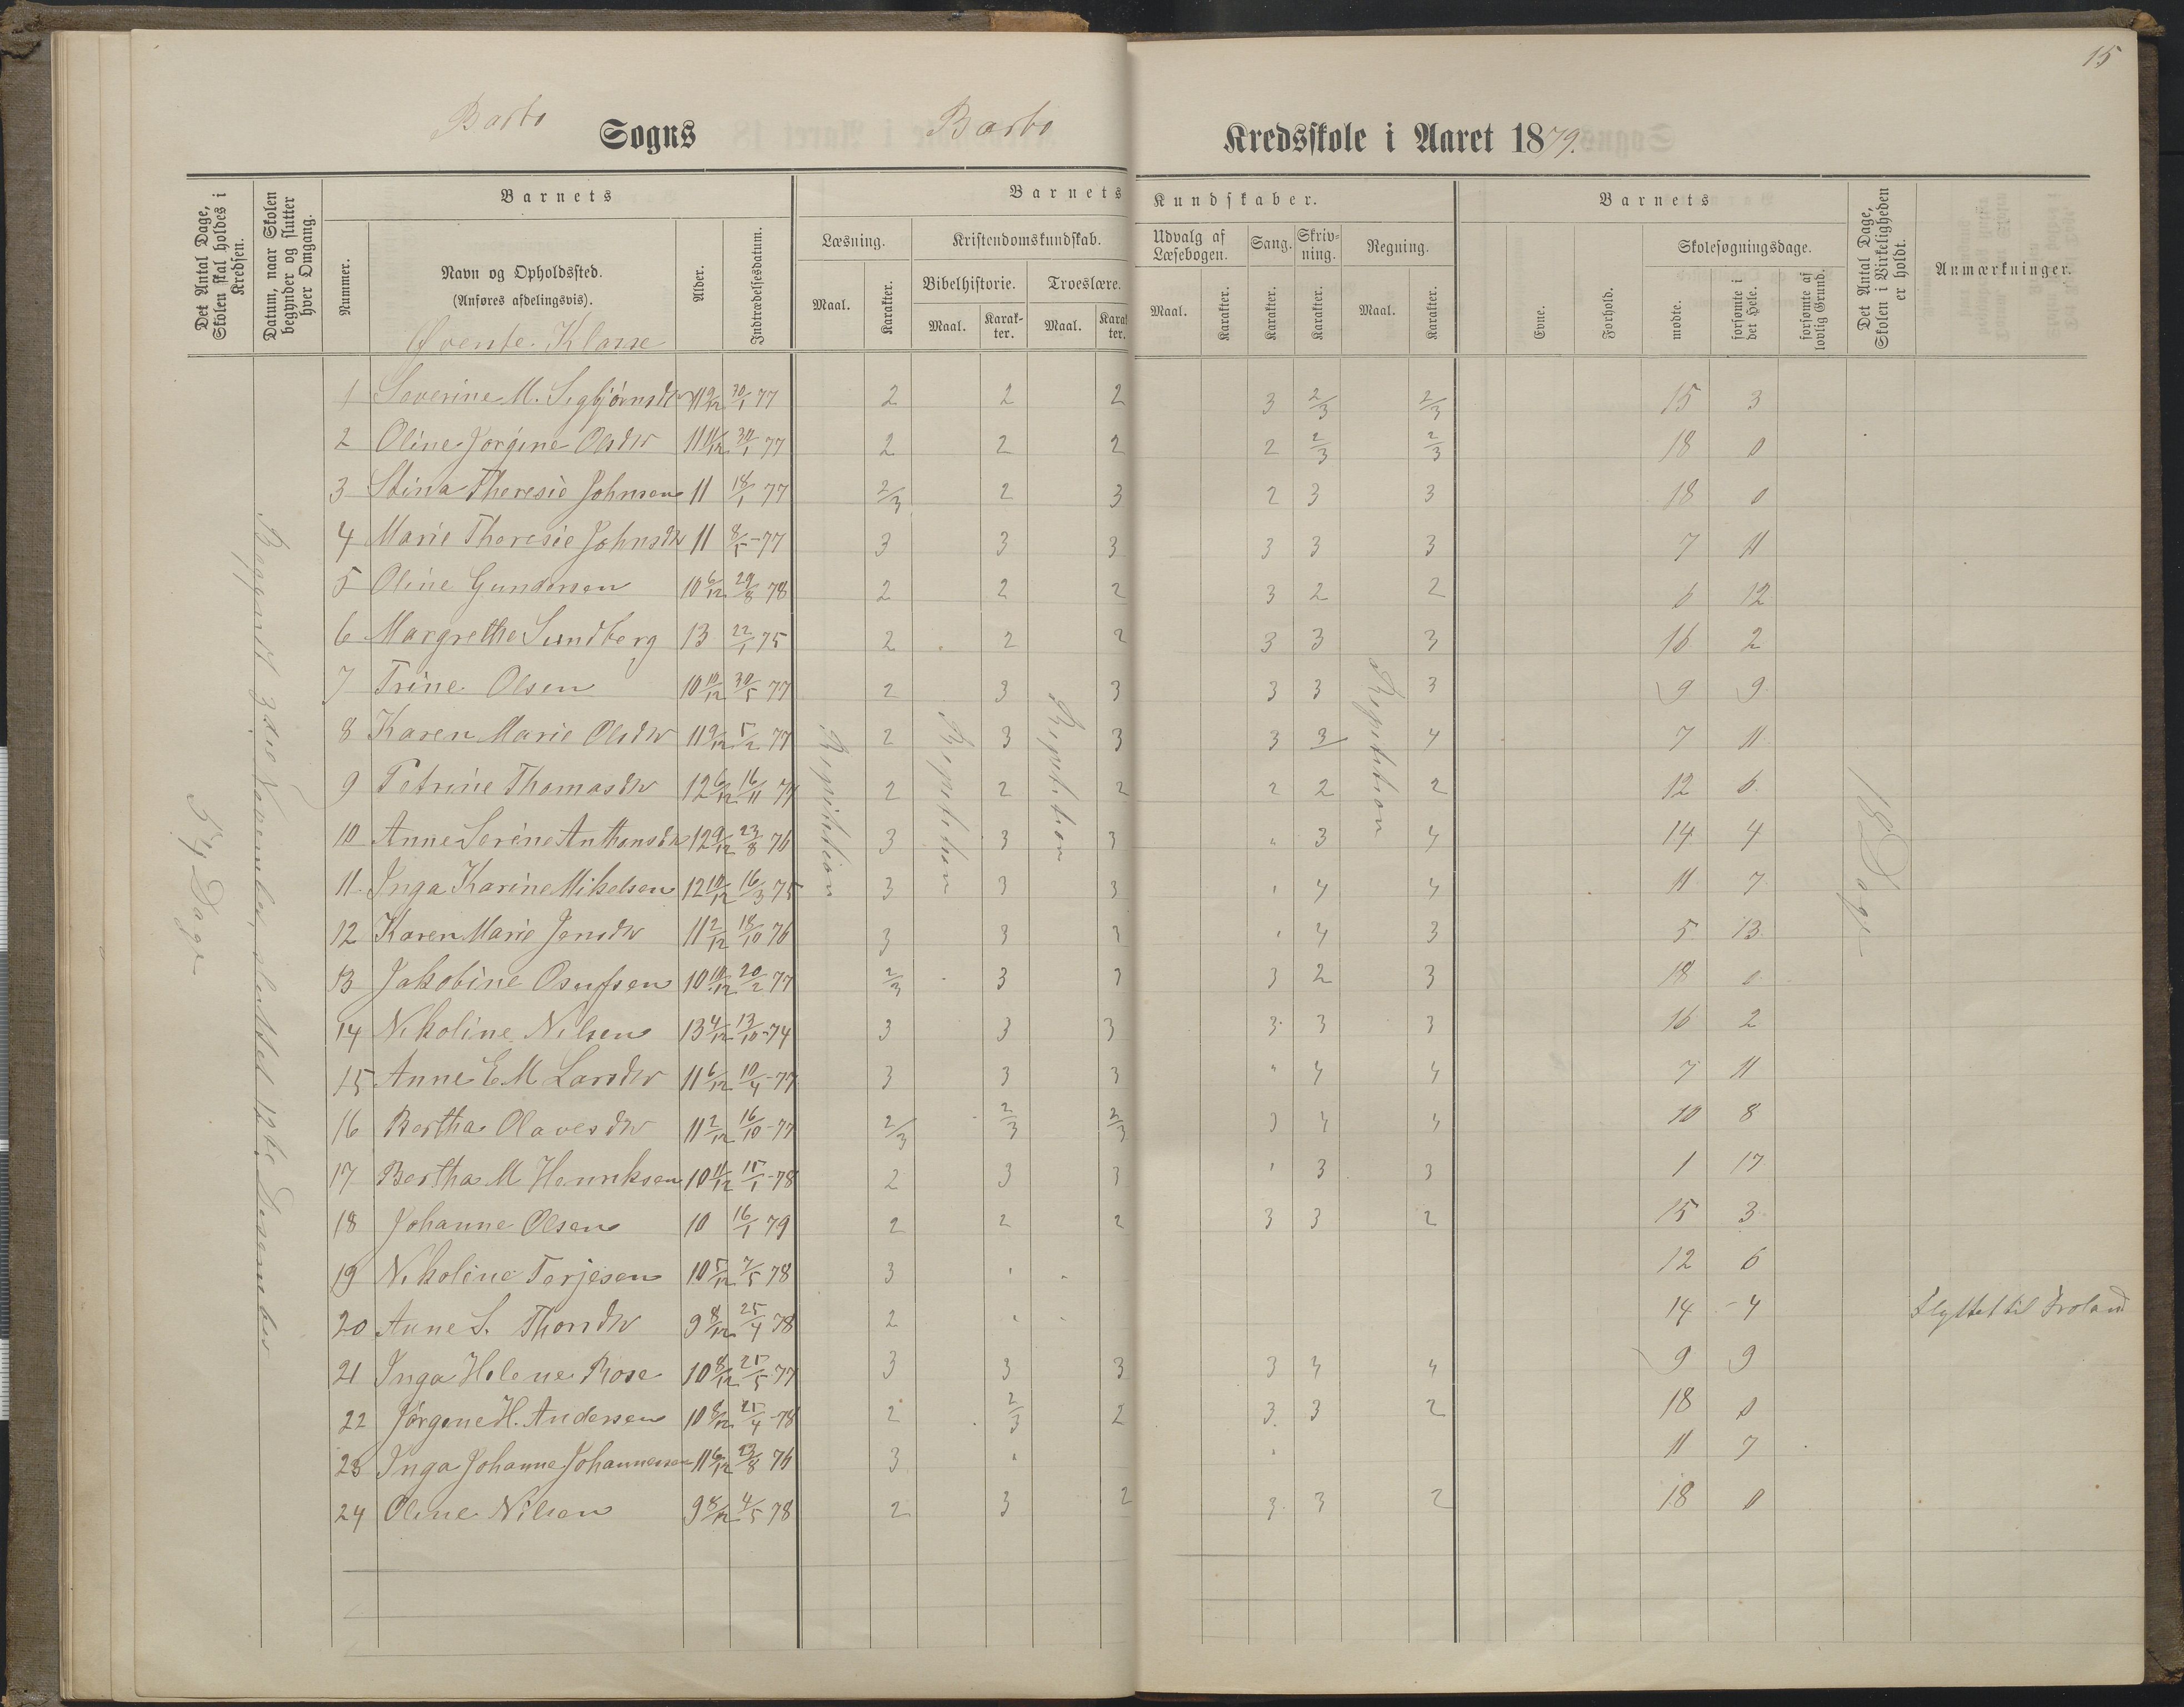 15
Barbo Sogns Barbo Kredsskole i Aaret 1879.
Det Antal Dage, Skolen skal holdes i Kredsen.
Datum, naar Skolen begynder og slutter hver Omgang.
Barnets
Nummer.
Navn og Opholdssted.
(Anføres afdelingsvis).
Øverste Klasse
Alder.
Indtrædelsesdatum.
Barnets Kundskaber.
Læsning.
Maal.
Karakter.
Kristendomskundskab.
Bibelhistorie.
Maal.
Karakter.
Troeslære.
Maal.
Karakter.
Udvalg af Læsebogen.
Maal.
Karakter.
Sang.
Karakter.
Skrivning.
Karakter.
Regning.
Maal.
Karakter.
Barnets
Evne.
Forhold.
Skolesøgningsdage.
mødte.
forsømte i det Hele.
forsømte af lovlig Grund.
Det Antal Dage, Skolen i Virkeligheden er holdt.
Anmærkninger.
54 Dage
Begyndt 3die November, sluttet 12te December
Repetition
Repetition
Repetition
Repetition
18 Dage
1 Severine M. Sigbjørnsdtr 11 9/12 30/1 77 2 2 2 3 2/3 2/3 15 3
2 Oline Jorgine Olsdtr 11 11/12 30/1 77 2 2 2 2 2/3 2/3 18 0
3 Stina Theresie Johnsen 11 18/1 77 2/3 2 3 2 3 3 18 0
4 Marie Theresie Johnsdtr 11 8/5-77 3 3 3 3 3 3 7 11
5 Oline Gundersen 10 6/12 29/8 78 2 2 2 3 2 2 6 12
6 Margrethe Sundberg 13 22/1 75 2 2 2 3 3 3 16 2
7 Trine Olsen 10 10/12 30/5 77 2 3 3 3 3 3 9 9
8 Karen Marie Olsdtr 11 9/12 5/2 77 2 3 3 3 3 4 7 11
9 Petrine Thomasdtr 12 6/12 16/11 74 2 2 2 2 2 2 12 6
10 Anne Serine Anthonsdtr 12 9/12 23/8 76 3 3 3 " 3 4 14 4
11 Inga Karine Mikelsen 12 10/12 16/3 75 3 3 3 " 4 4 11 7
12 Karen Marie Jensdtr 11 2/12 18/10 76 3 3 3 " 4 3 5 13
13 Jakobine Osufsen 10 10/12 20/2 77 2/3 3 3 3 2 3 18 0
14 Nikoline Nilsen 13 4/12 13/10-74 3 3 3 3 3 3 16 2
15 Anne E M Larsdtr 11 6/12 10/4-77 3 3 3 " 4 4 7 11
16 Bertha Olavesdtr 11 2/12 16/10-77 2/3 2/3 2/3 3 4 4 10 8
17 Bertha M Henriksen 10 11/12 15/1-78 2 3 3 " 3 3 1 17
18 Johanne Olsen 10 16/1 79 2 2 2 3 3 2 15 3
19 Nikoline Terjesen 10 5/12 7/5 78 3 " " 12 6
20 Anne S. Thorsdtr 9 8/12 25/4 78 2 " " 14 4 Flyttet til Froland
21 Inga Helene Rose 10 8/12 25/5-77 3 3 3 3 4 4 9 9
22 Jörgine H. Andersen 10 8/12 25/4-78 2 2/3 2 3 3 2 18 0
23 Inga Johanne Johannesen 11 6/12 23/8 76 3 " " 11 7
24 Oline Nilsen 9 8/12 4/5 78 2 3 2 3 3 2 18 0